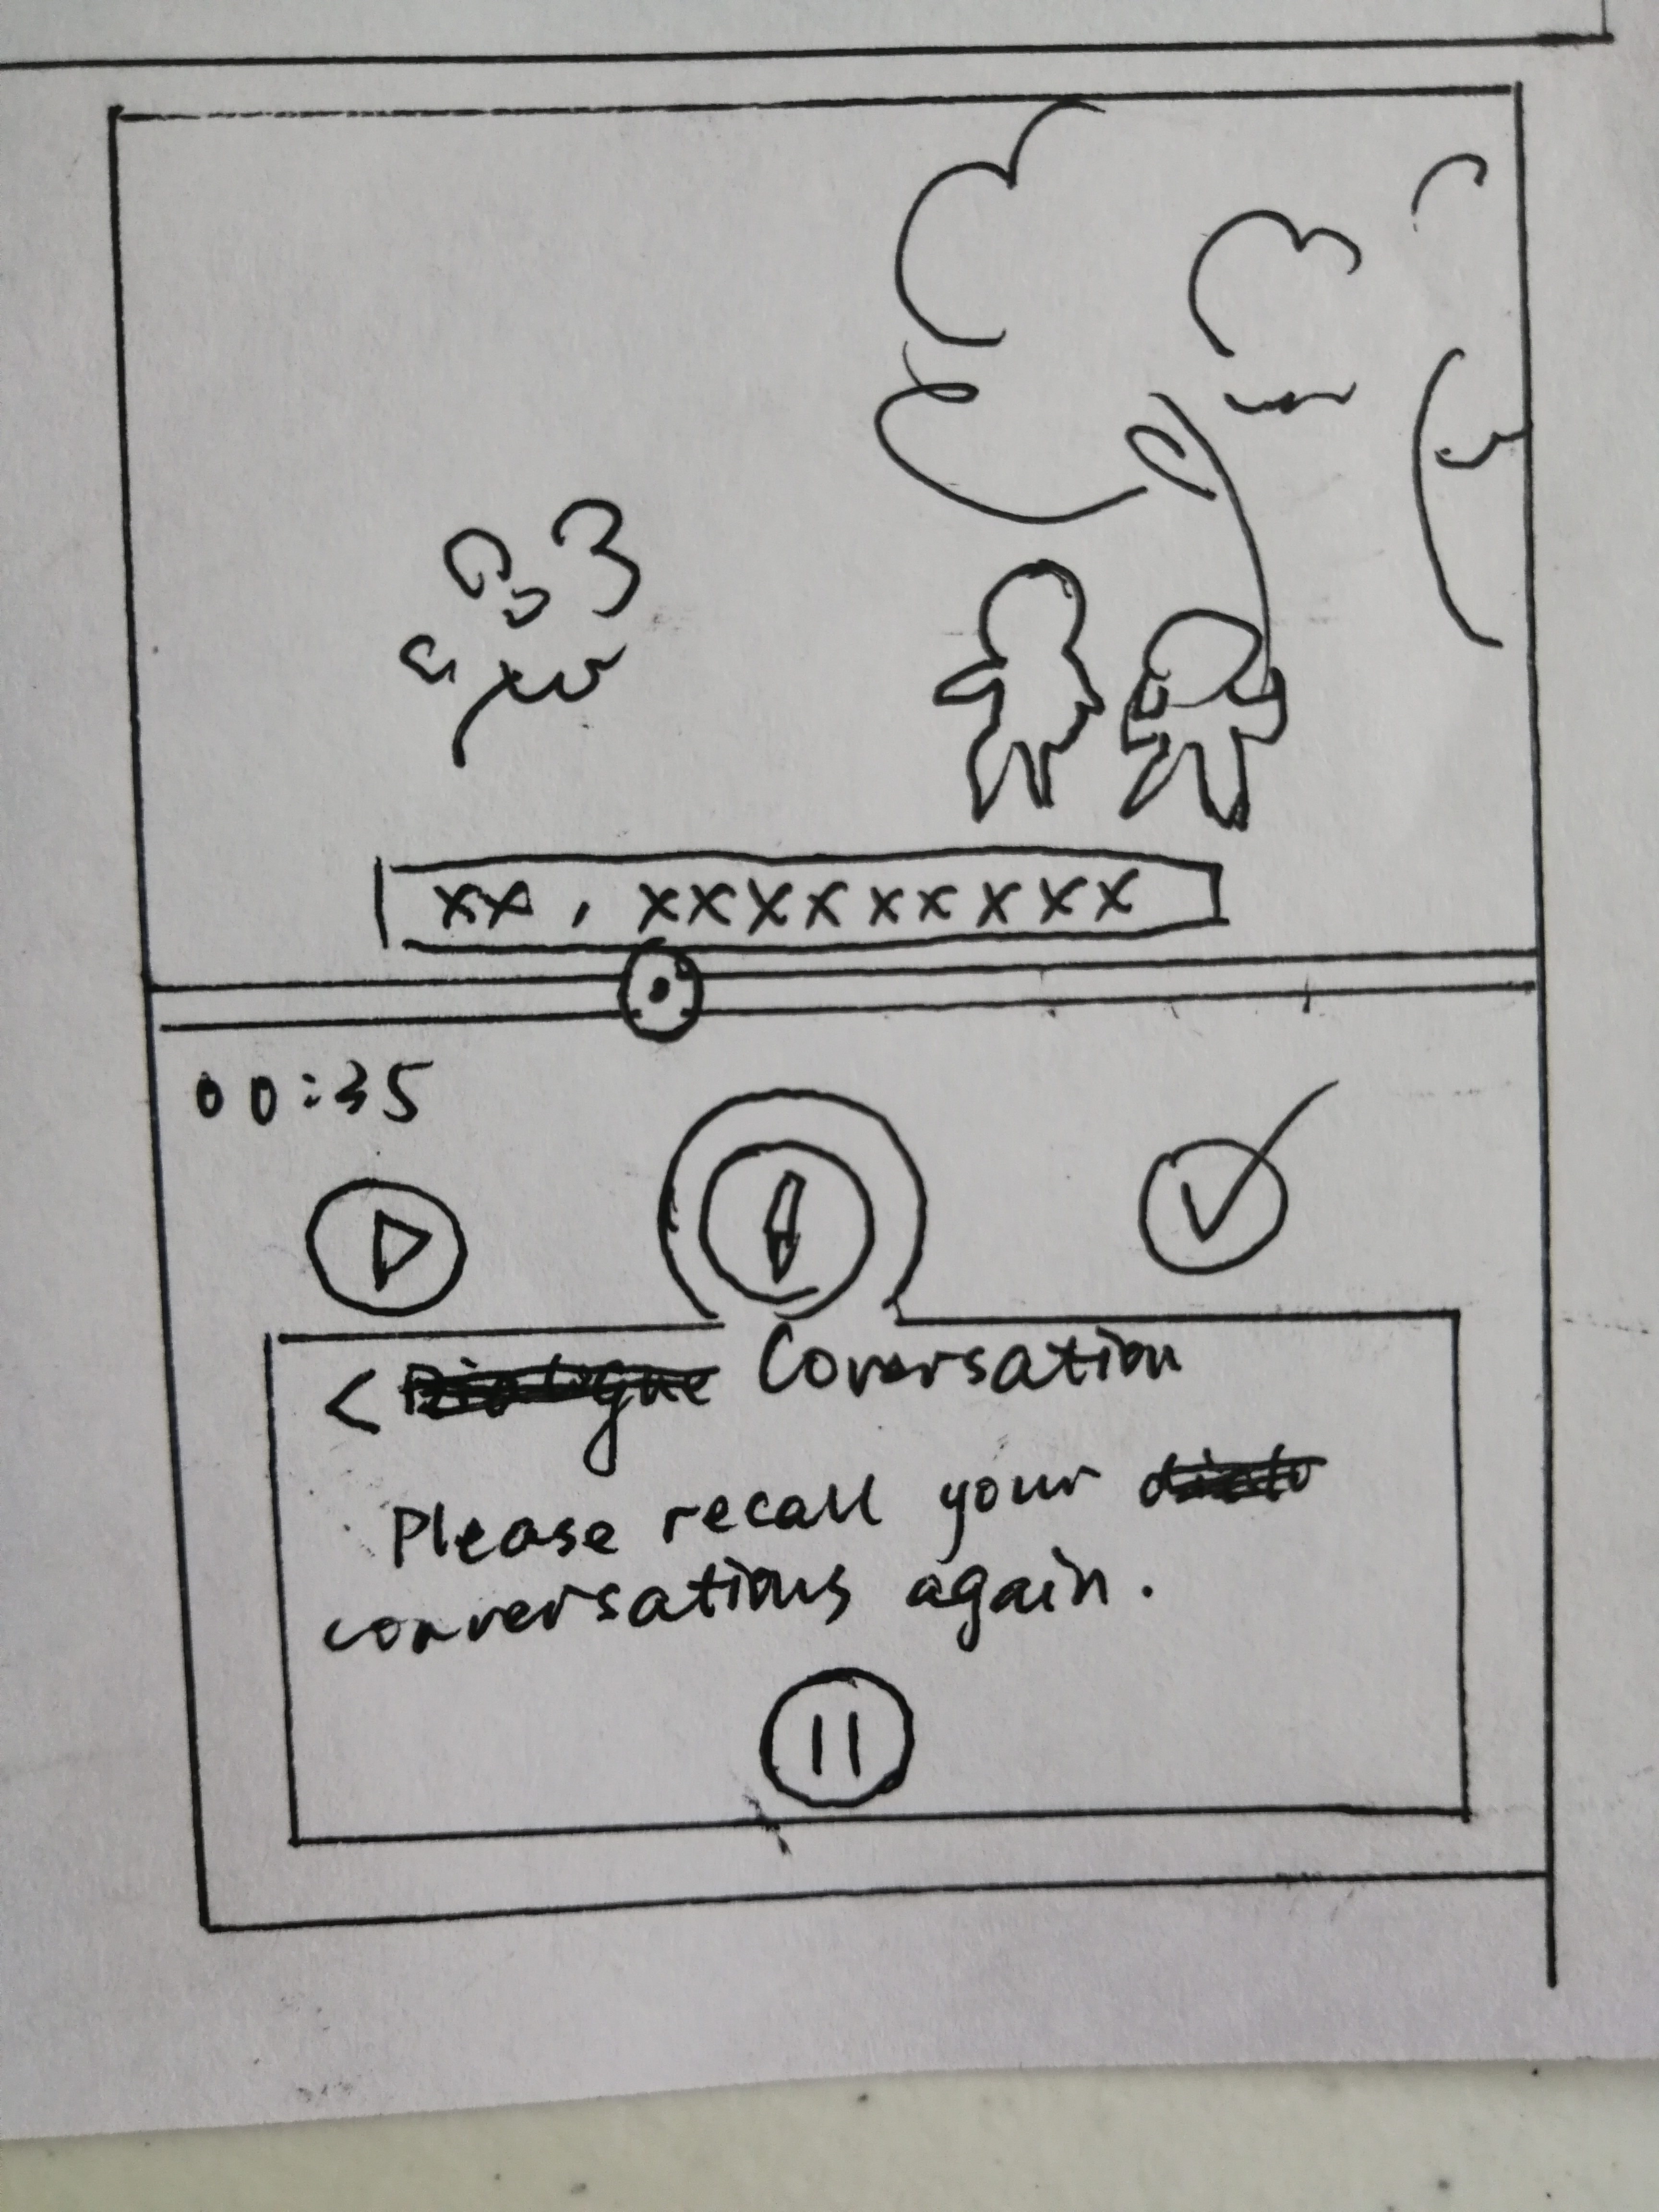 xx, xxxxxxxxx
00:35
< Coversation
Please recall your
conversations again.